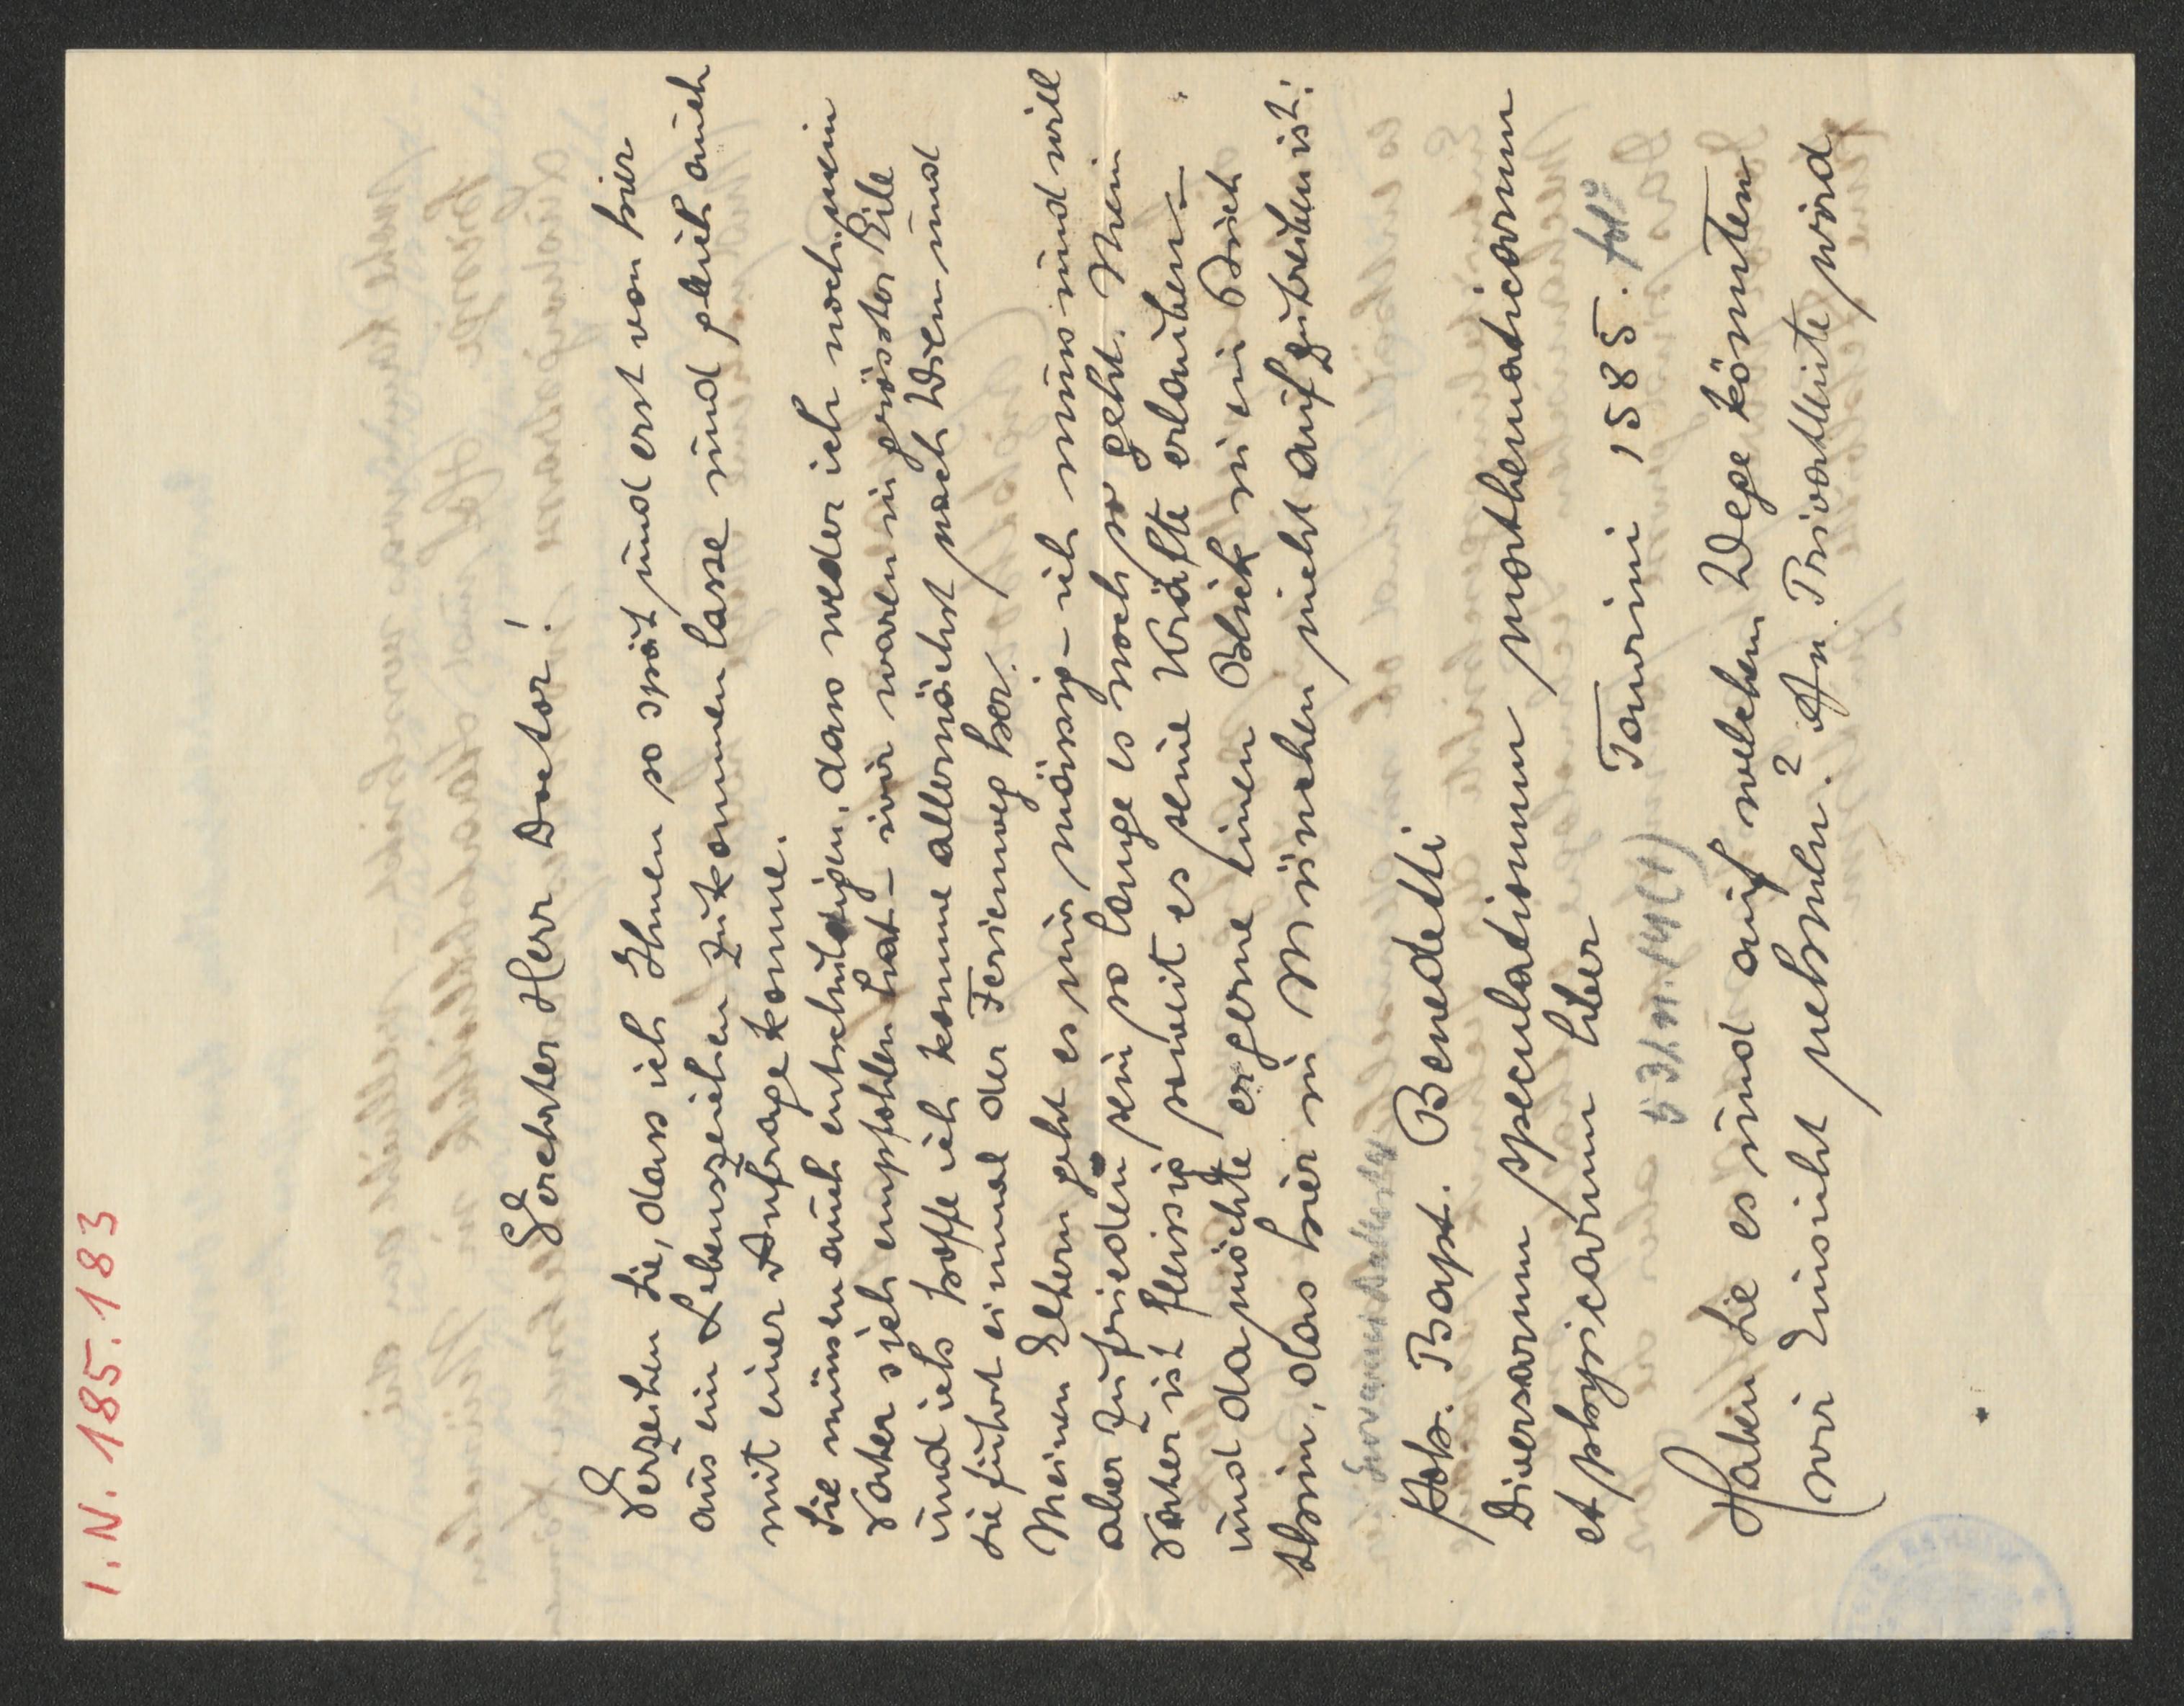 I.N. 185.183
Verehrter Herr Doctor!
Verzeihen Sie, dass ich Ihnen so spät und erst von hier
aus ein Lebenszeichen zukommen lasse und gleich auch
mit einer Anfrage komme.
Sie müssen auch entschuldigen, dass weder ich noch mein
Vater sich empfohlen hat – wir waren in grösster Eile
und ich hoffe ich komme allernächst nach Wien und
Sie führt einmal der Ferienweg her.
Meinen Eltern geht es nur mässig – ich muss und will
aber zufrieden sein so lange es noch so geht. Mein
Vater ist fleissig soweit es seine Kräfte erlauben –
und da möchte er gerne einen Blick in ein Buch
thun, das hier in München nicht aufzutreiben ist:
Giovanni Battista
Joh. Bapt. Benedetti
Diversarum speculationum mathematicarum
et physicarum liber Taurini 1585. fol°
72.M.14 (1)
Haben Sie es und auf welchem Wege könnten
wir Einsicht nehmen? An Privatleute wird